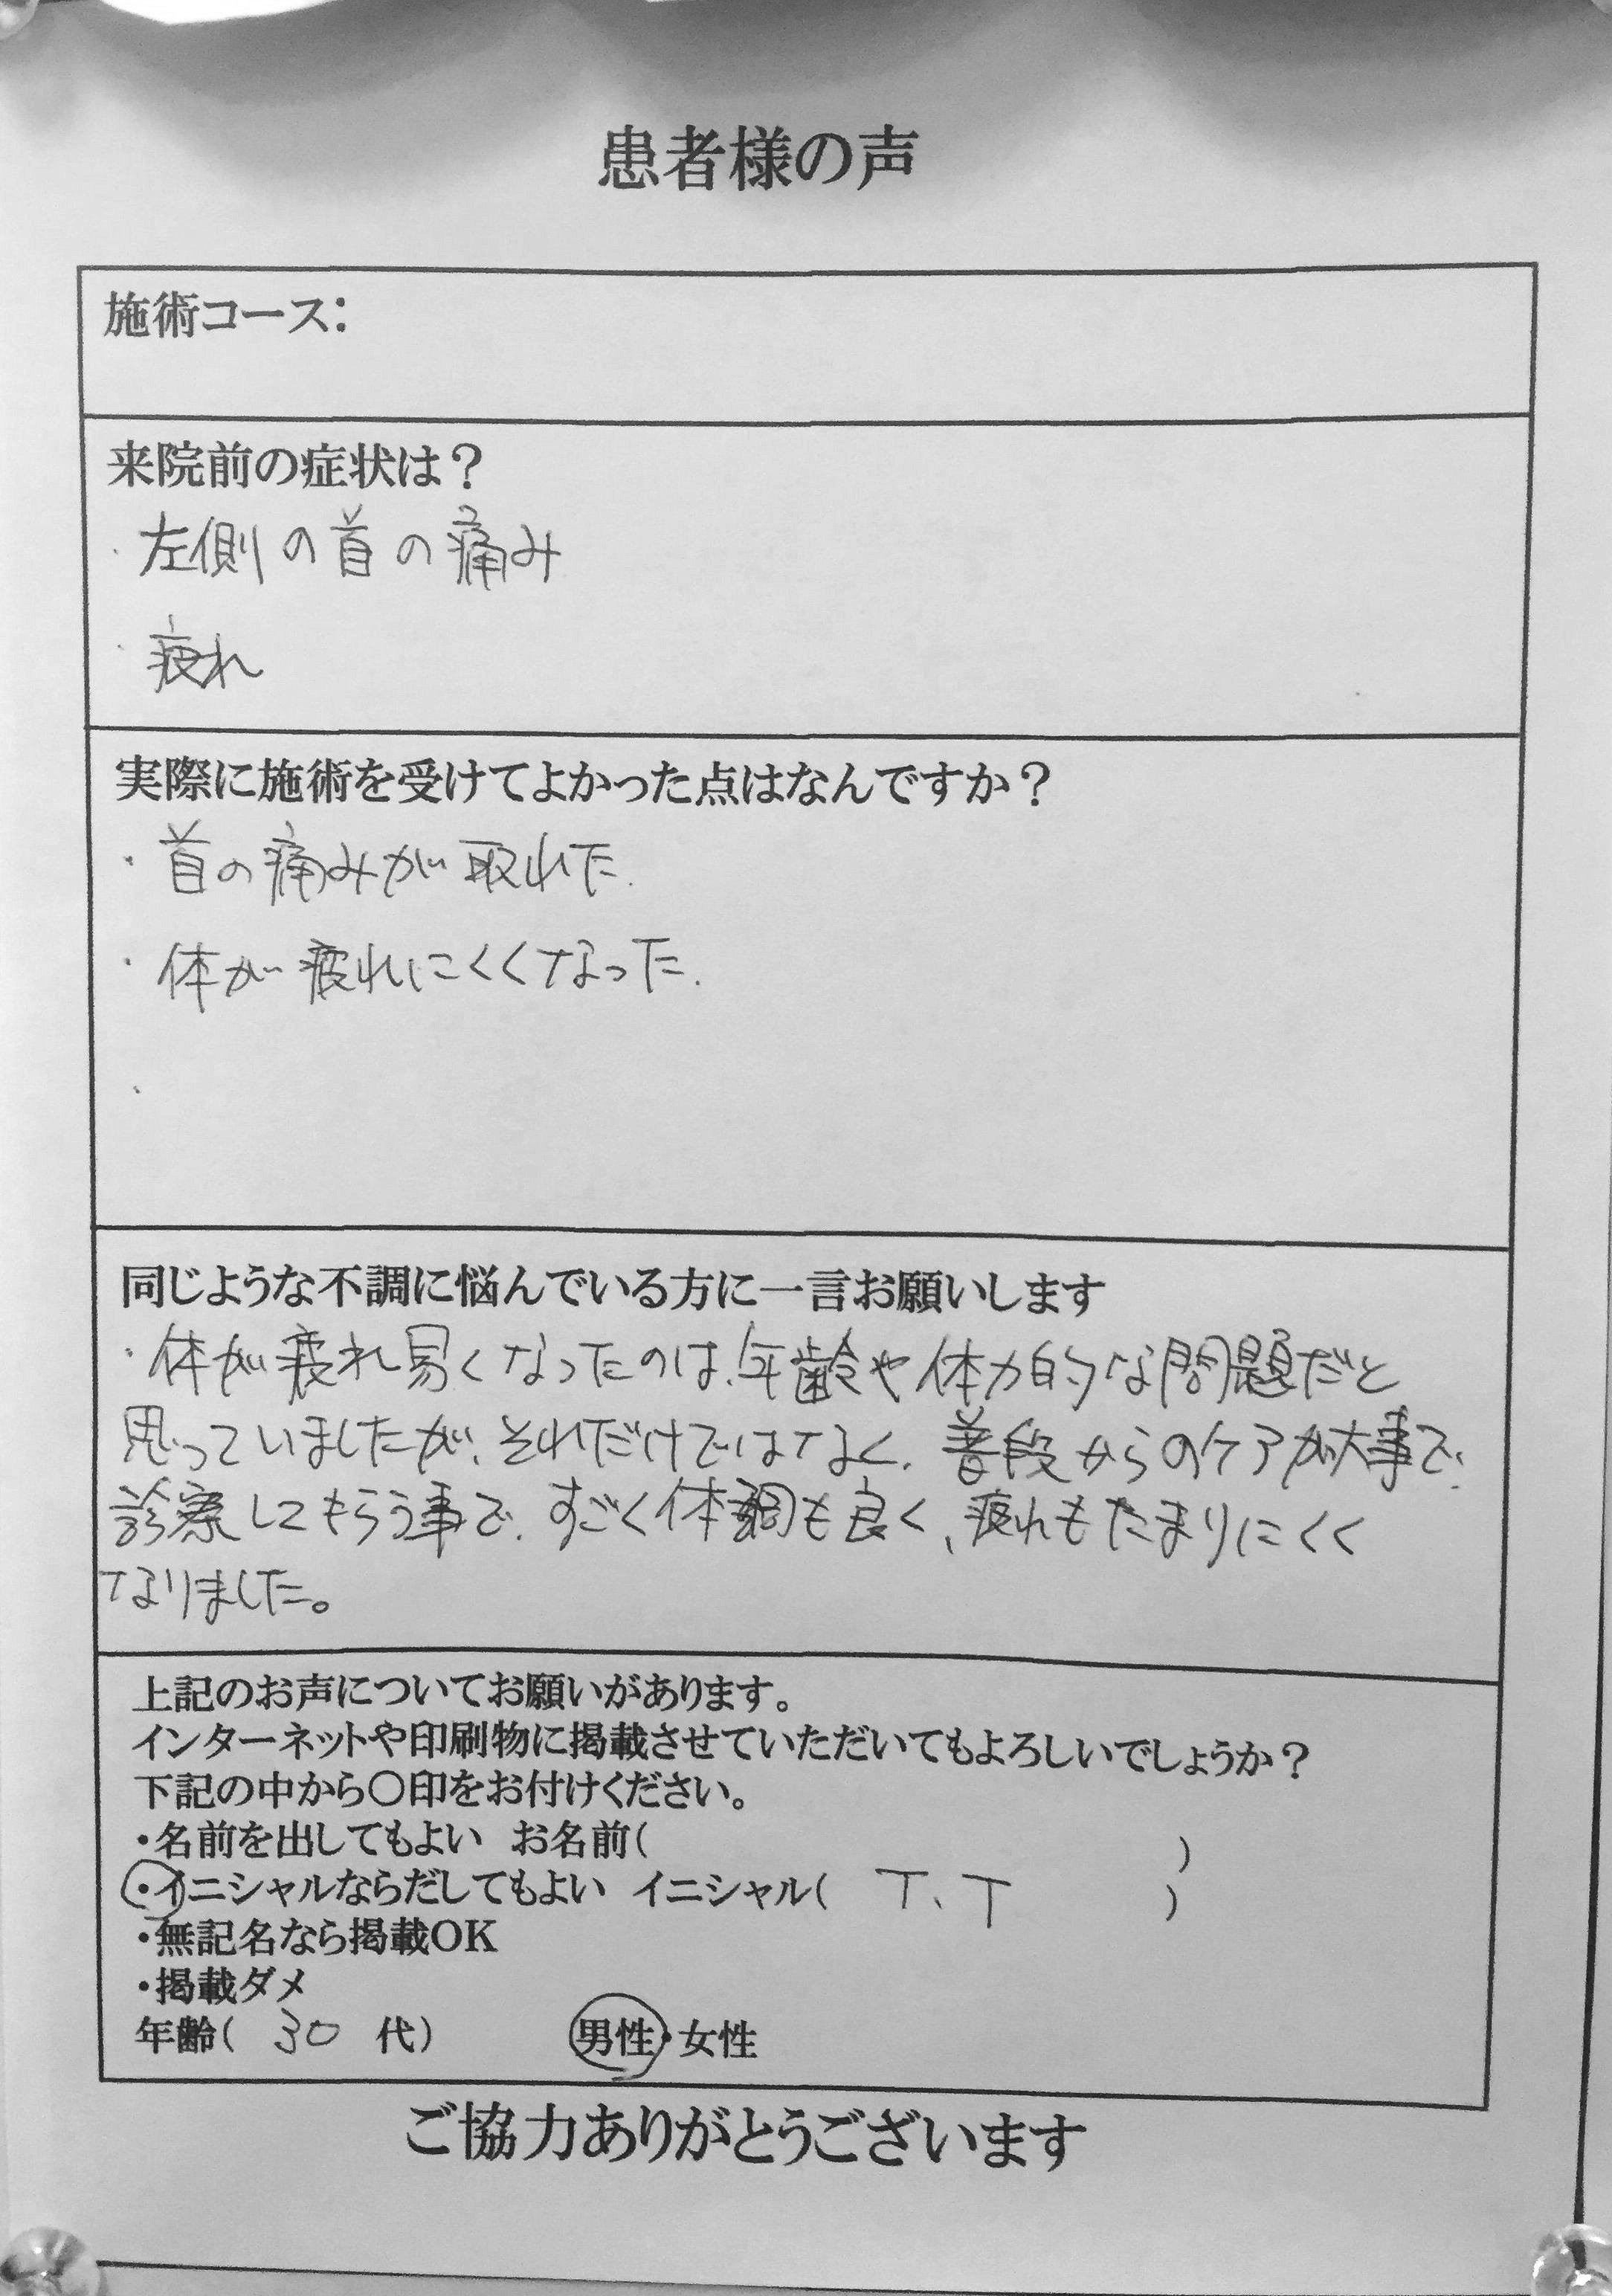 患者様の声
施術コース:
来院前の症状は？
・左側の首の痛み
・疲れ
実際に施術を受けてよかった点はなんですか？
・首の痛みが取れた.
・体が疲れにくくなった.
・
同じような不調に悩んでいる方に一言お願いします
・体が疲れ易くなったのは、年齢や体力的な問題だと
思っていましたが、それだけではなく、普段からのケアが大事で、
診察してもらう事で、すごく体調も良く、疲れもたまりにくく
なりました。
上記のお声についてお願いがあります。
インターネットや印刷物に掲載させていただいてもよろしいでしょうか？
下記の中から〇印をお付けください。
・名前を出してもよい お名前( )
・イニシャルならだしてもよい イニシャル( T、T )
・無記名なら掲載OK
・掲載ダメ
年齢( 30 代) 男性・女性
ご協力ありがとうございます